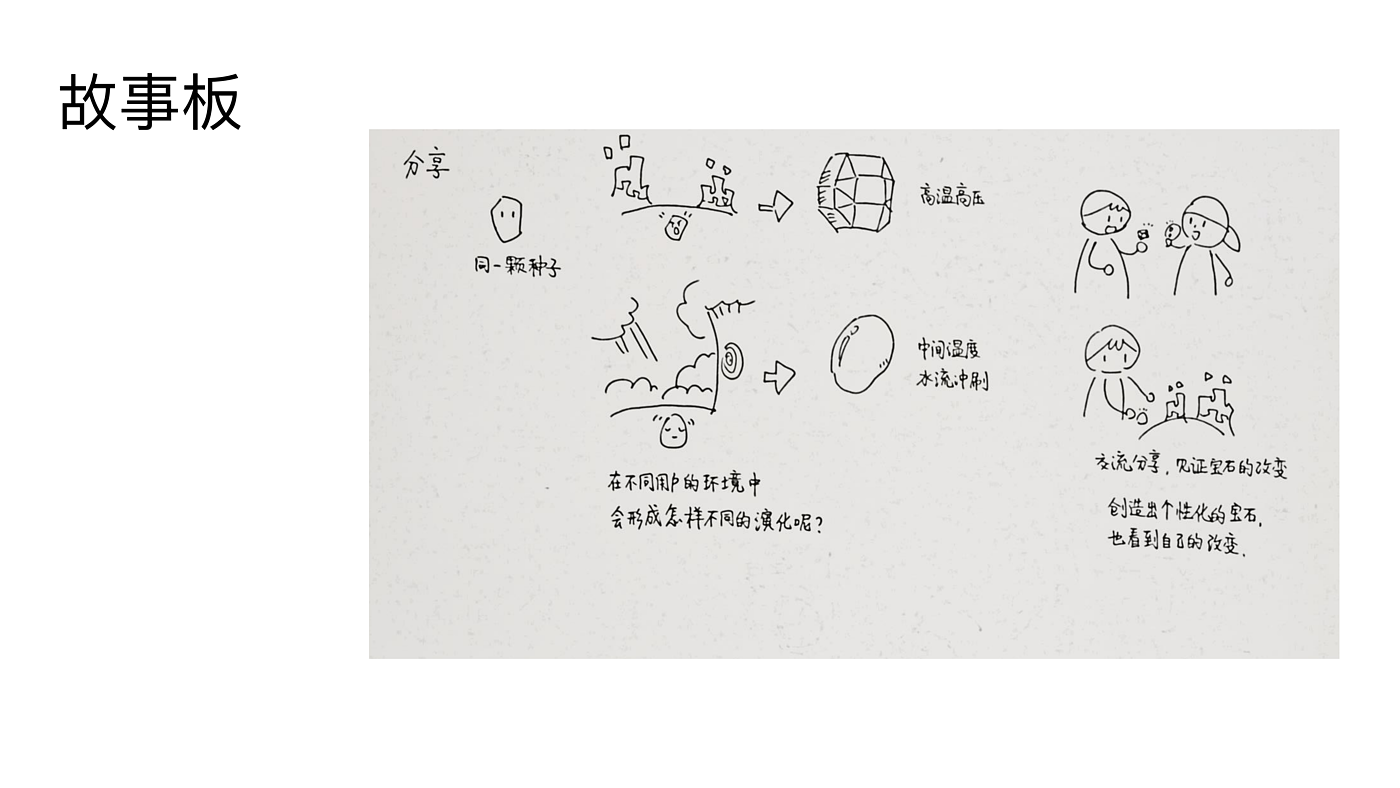 故事板
分享
同一颗种子
高温高压
中间温度
水流冲刷
在不同用户的环境中
会形成怎样不同的演化呢？
交流分享，见证宝石的改变
创造出个性化的宝石，
也看到自己的改变。